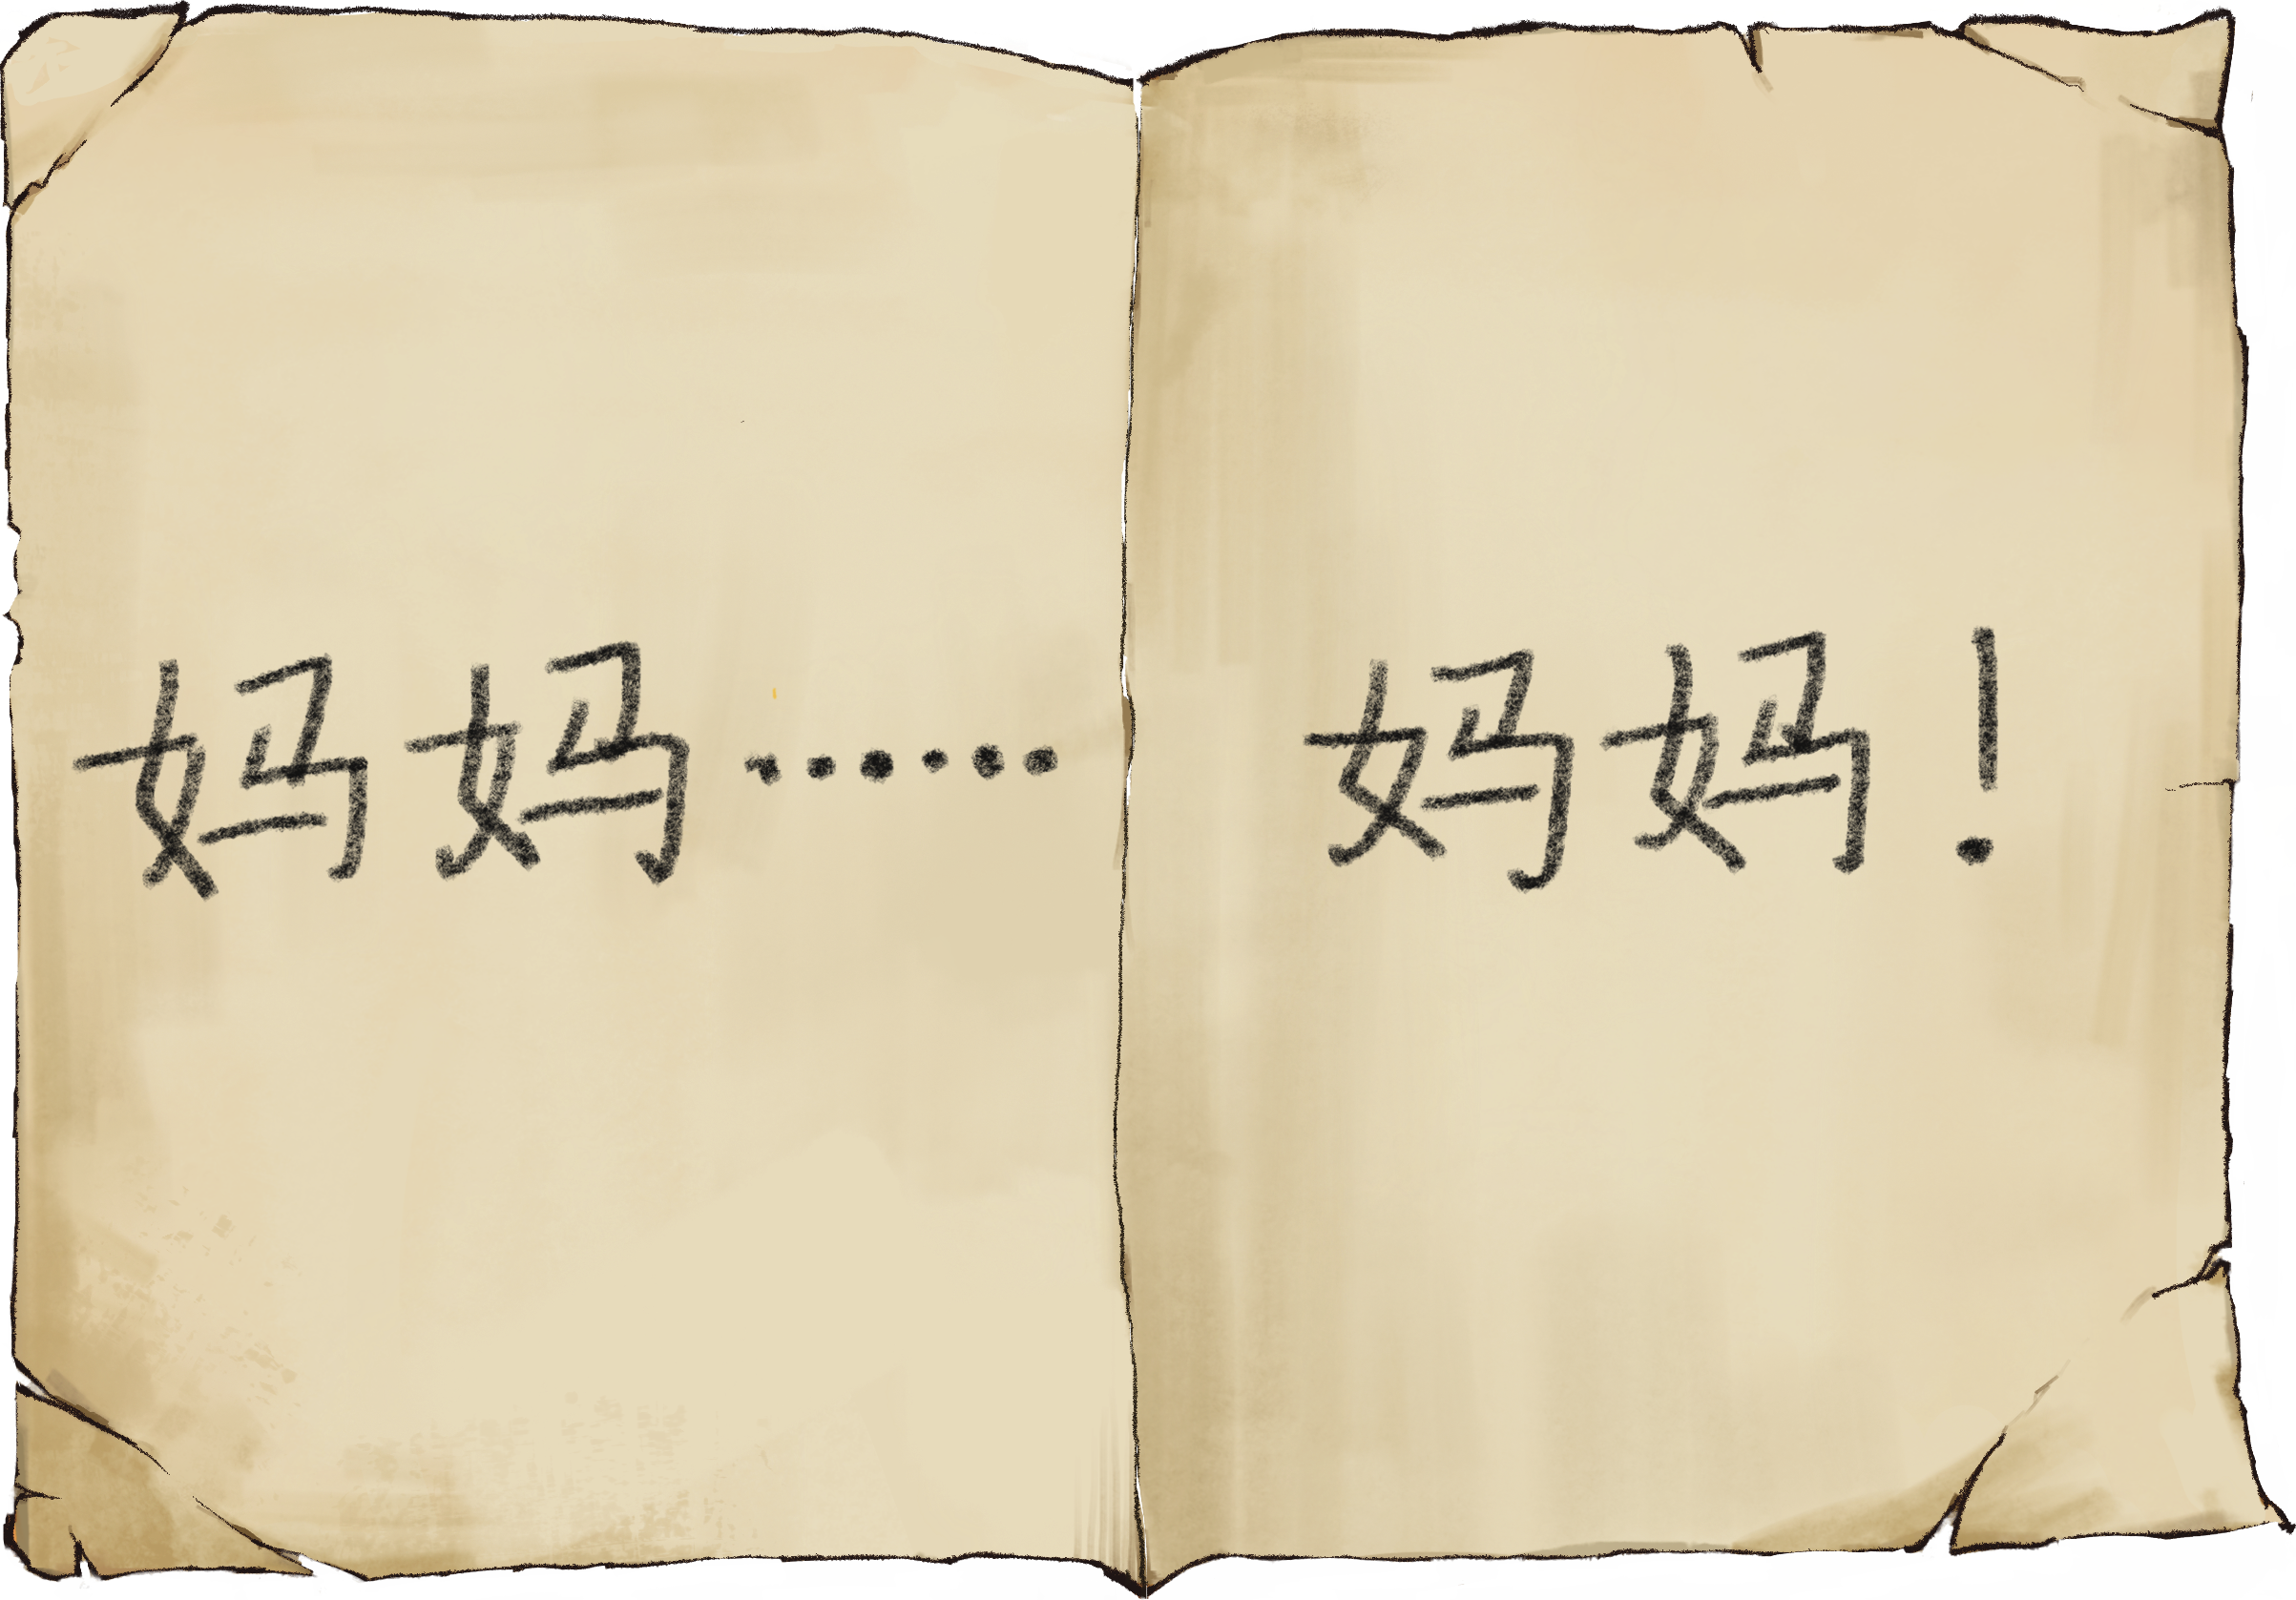 妈妈……
妈妈！